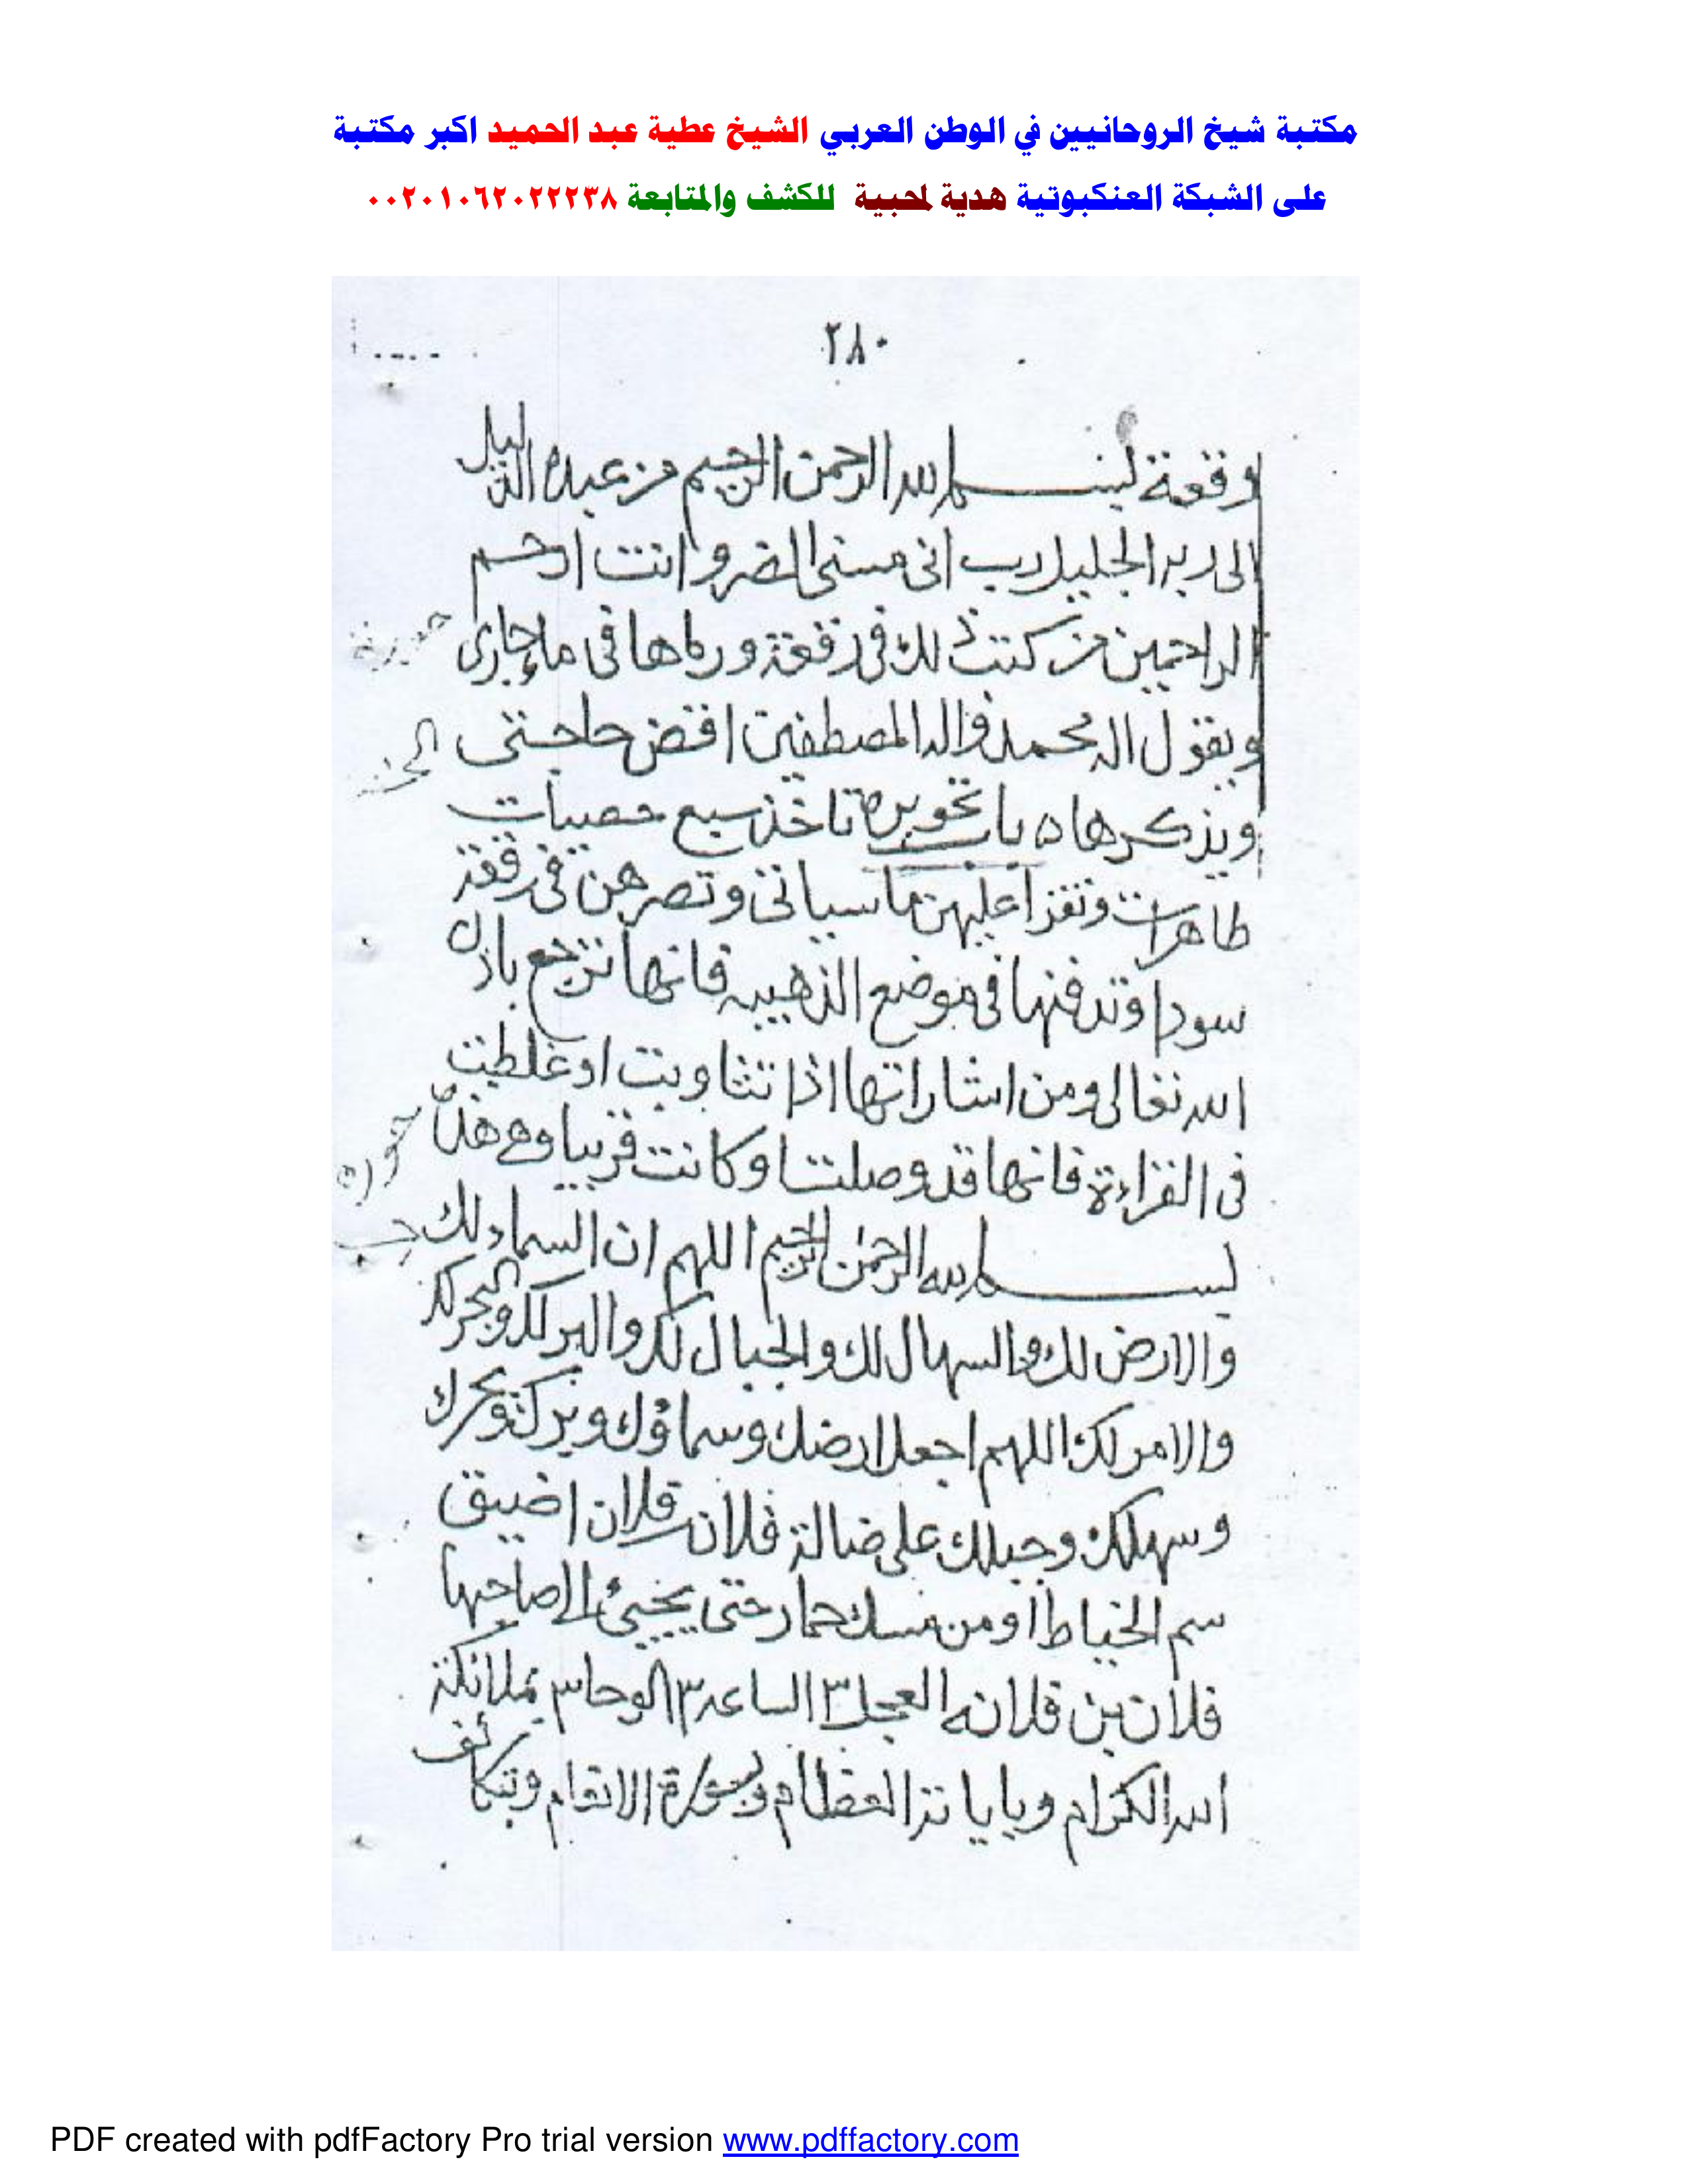 مكتبة شيخ الروحانيين في الوطن العربي الشيخ عطية عبد الحميد اكبر مكتبة
على الشبكة العنكبوتية هدية لمحبية للكشف والمتابعة ٠٠٢٠١٠٦٢٠٢٢٢٣٨
٢٨٠
وقعة بسم الله الرحمن الرحيم من عبده الذليل
الى ربه الجليل رب انى مسنى الضر وانت ارحم
الراحمين من كتب ذلك فى رقعة ورماها فى ماء جارى
ويقول اله محمد واله المصطفين اقض حاجتى
ويذكرها ه باب تحويره تاخذ سبع حصيات
طاهرات وتقرا عليهن ما سياتى وتصرهن فى رقعة
سودا وتدفنها فى موضع الذهيبه فانها ترجع باذن
الله تعالى ومن اشاراتها اذا تثاوبت او غلطت
فى القراءة فانها قد وصلت او كانت قريبا وهى هذا
بسم الله الرحمن الرحيم اللهم ان السماء لك
والارض لك والسهال لك والجبال لك والبر لك والبحر لك
والامر لك اللهم اجعل ارضك وسماؤك وبرك وبحرك
وسهلك وجبلك على ضالة فلان فلان اضيق
سم الخياط او من مسك حمار حتى يجيئ الى صاحبها
فلان بن فلانه العجل ٣ الساعه ٣ الوحا ٣ بملائكة
الله الكرام وباياته العظام وبسورة الانعام وبتكا
جوره